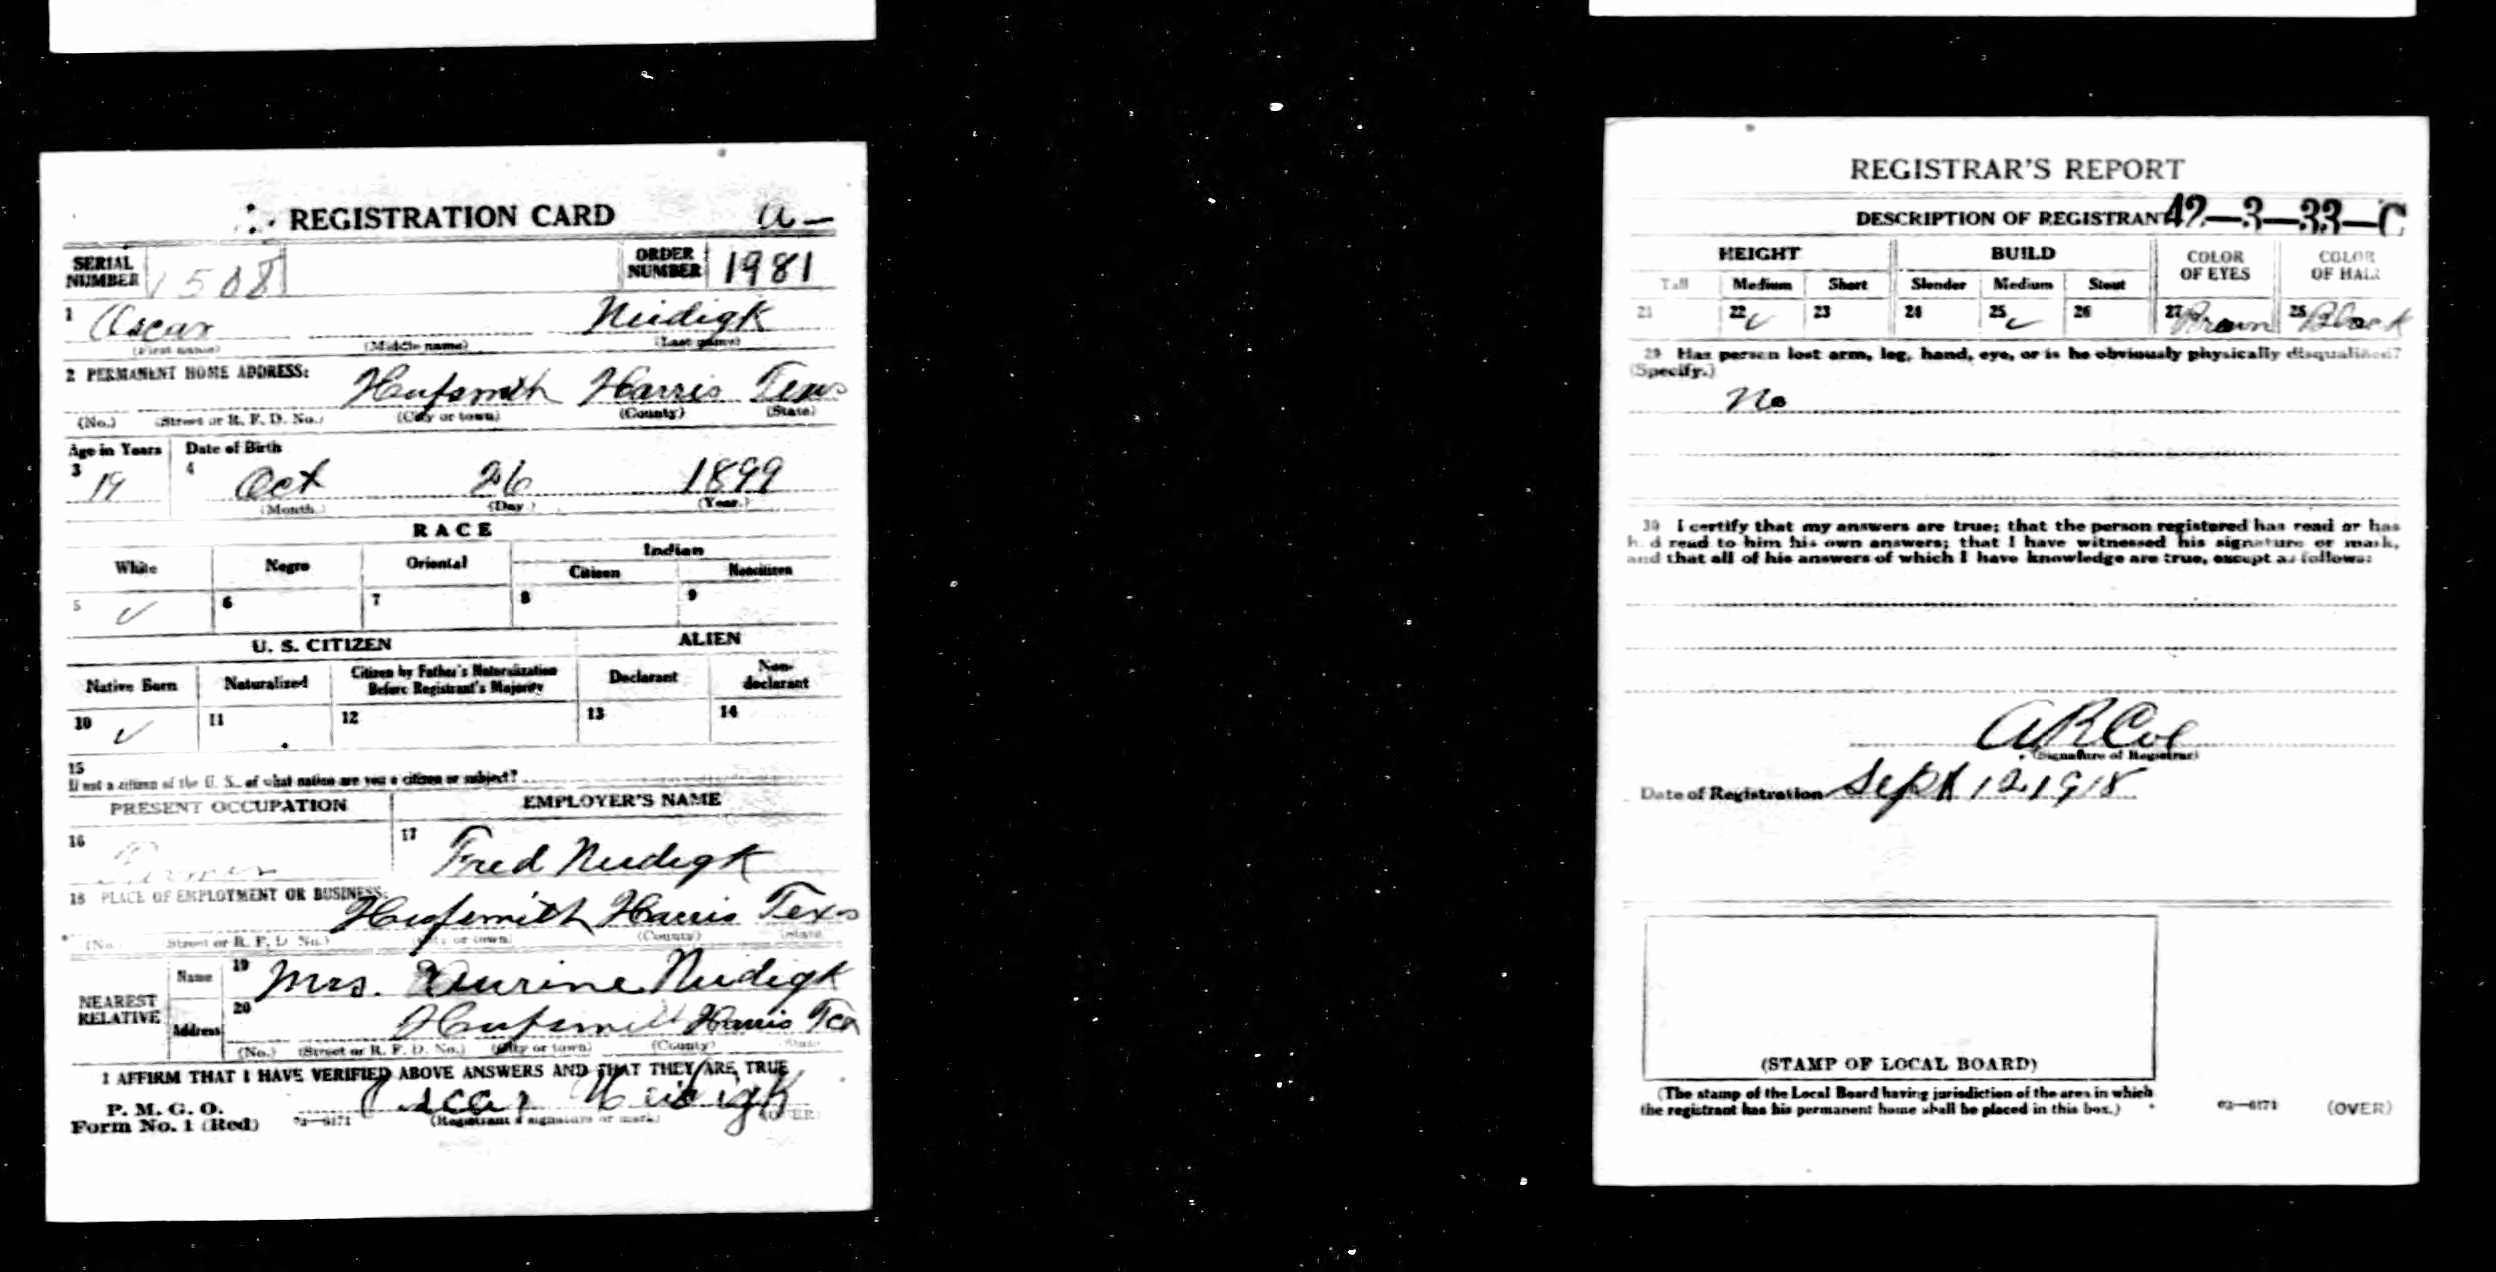 REGISTRATION CARD a—
SERIAL NUMBER 1508 ORDER NUMBER 1981
1 Oscar Neidigk
(First name) (Middle name) (Last name)
2 PERMANENT HOME ADDRESS: Hufsmith Harris Texas
(No.) (Street or R. F. D. No.) (City or town) (County) (State)
Age in Years Date of Birth
3 19 4 Oct 26 1899
(Month.) (Day.) (Year.)
RACE
White Negro Oriental Indian
Citizen Noncitizen
5 ✓ 6 7 8 9
U. S. CITIZEN ALIEN
Native Born Naturalized Citizen by Father's Naturalization Before Registrant's Majority Declarant Non-declarant
10 ✓ 11 12 13 14
15
If not a citizen of the U. S., of what nation are you a citizen or subject?
PRESENT OCCUPATION EMPLOYER'S NAME
16 Farmer 17 Fred Neidigk
18 PLACE OF EMPLOYMENT OR BUSINESS: Hufsmith Harris Texas
(No.) (Street or R. F. D. No.) (City or town) (County) (State)
NEAREST RELATIVE
Name 19 Mrs. Neidigk
Address 20 Hufsmith Harris Tex
(No.) (Street or R. F. D. No.) (City or town) (County) (State)
I AFFIRM THAT I HAVE VERIFIED ABOVE ANSWERS AND THAT THEY ARE TRUE
P. M. G. O.
Form No. 1 (Red) 03—6171 Oscar Neidigk
(Registrant's signature or mark) (OVER)
REGISTRAR'S REPORT
DESCRIPTION OF REGISTRANT 42—3—33—C
HEIGHT BUILD COLOR OF EYES COLOR OF HAIR
Tall Medium Short Slender Medium Stout
21 22 ✓ 23 24 25 ✓ 26 27 Brown 28 Black
29 Has person lost arm, leg, hand, eye, or is he obviously physically disqualified?
(Specify.)
No
30 I certify that my answers are true; that the person registered has read or has
had read to him his own answers; that I have witnessed his signature or mark,
and that all of his answers of which I have knowledge are true, except as follows:
A R Coe
(Signature of Registrar)
Date of Registration Sept 12 1918
(STAMP OF LOCAL BOARD)
(The stamp of the Local Board having jurisdiction of the area in which
the registrant has his permanent home shall be placed in this box.)
03—6171 (OVER)